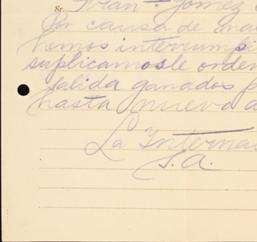 Sr. Juan Gomez
Por causa de
hemos interrumpi
suplicamosle orden
salida ganados p
hasta nuevo a
La Interna
S.A.